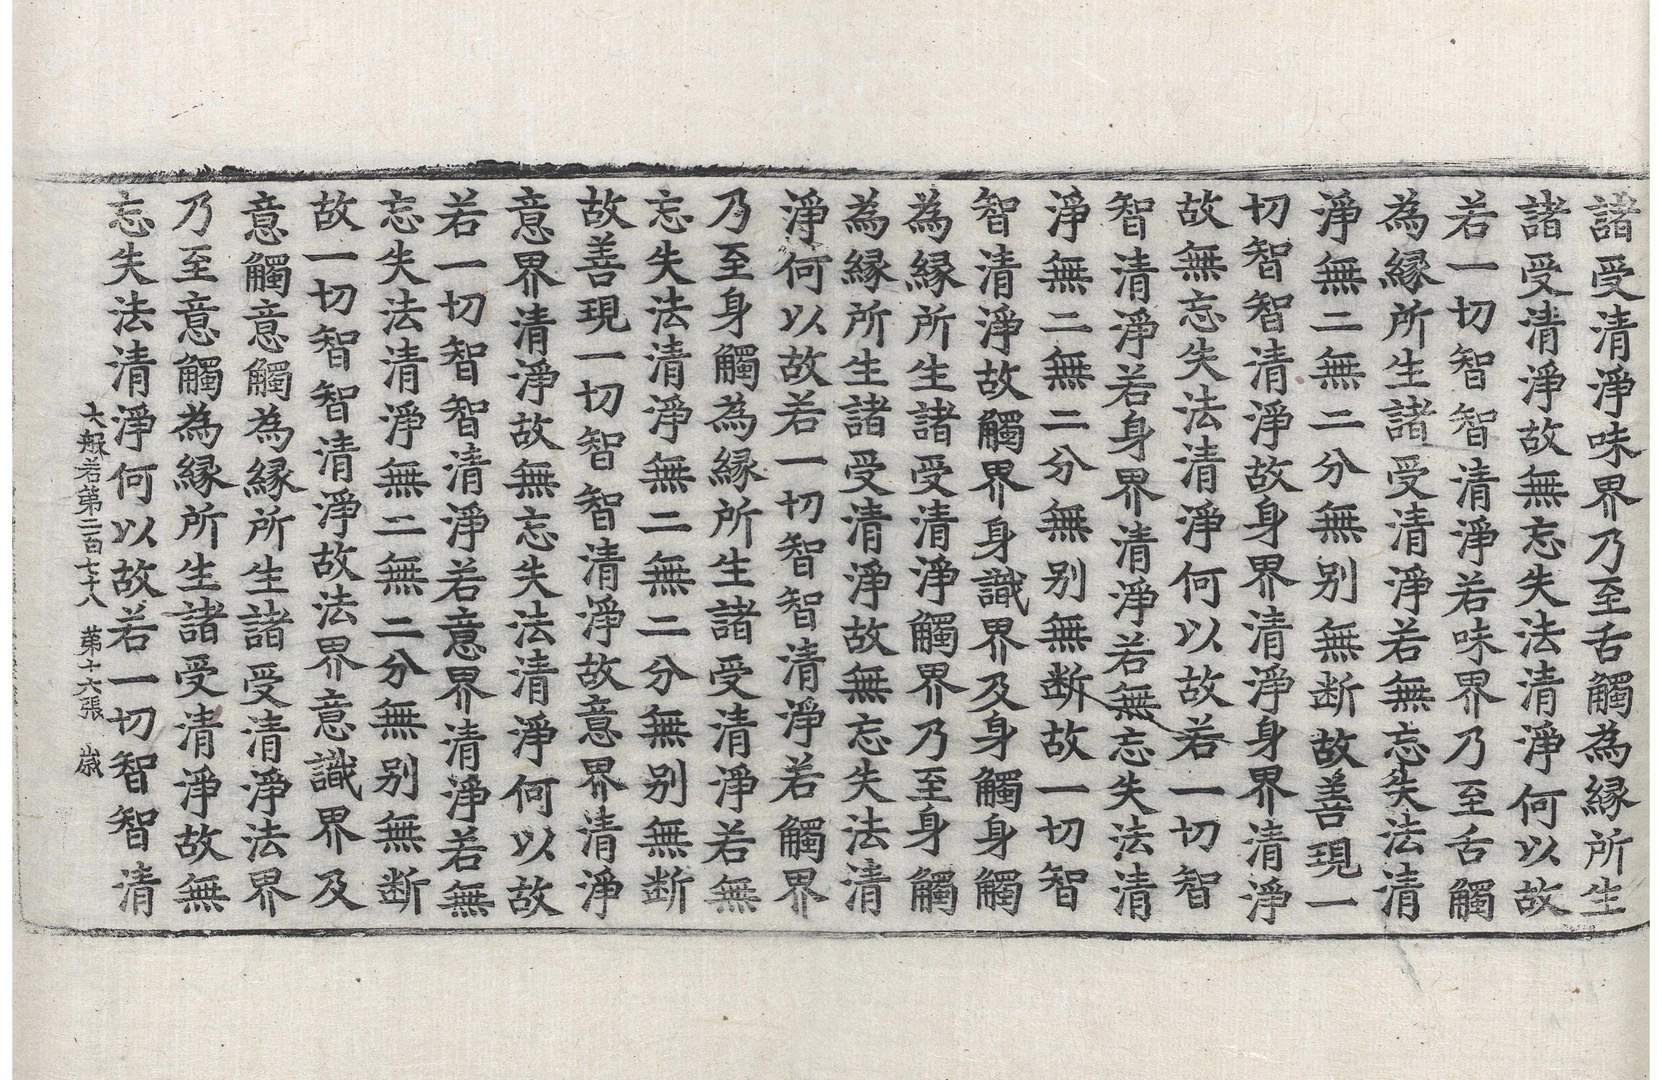 諸受清淨味界乃至舌觸為緣所生
諸受清淨故無忘失法清淨何以故
若一切智智清淨若味界乃至舌觸
為緣所生諸受清淨若無忘失法清
淨無二無二分無別無断故善現一
切智智清淨故身界清淨身界清淨
故無忘失法清淨何以故若一切智
智清淨若身界清淨若無忘失法清
淨無二無二分無別無断故一切智
智清淨故觸界身識界及身觸身觸
為緣所生諸受清淨觸界乃至身觸
為緣所生諸受清淨故無忘失法清
淨何以故若一切智智清淨若觸界
乃至身觸為緣所生諸受清淨若無
忘失法清淨無二無二分無別無断
故善現一切智智清淨故意界清淨
意界清淨故無忘失法清淨何以故
若一切智智清淨若意界清淨若無
忘失法清淨無二無二分無別無断
故一切智智清淨故法界意識界及
意觸意觸為緣所生諸受清淨法界
乃至意觸為緣所生諸受清淨故無
忘失法清淨何以故若一切智智清
大般若第二百七十八 第十六張 嵗